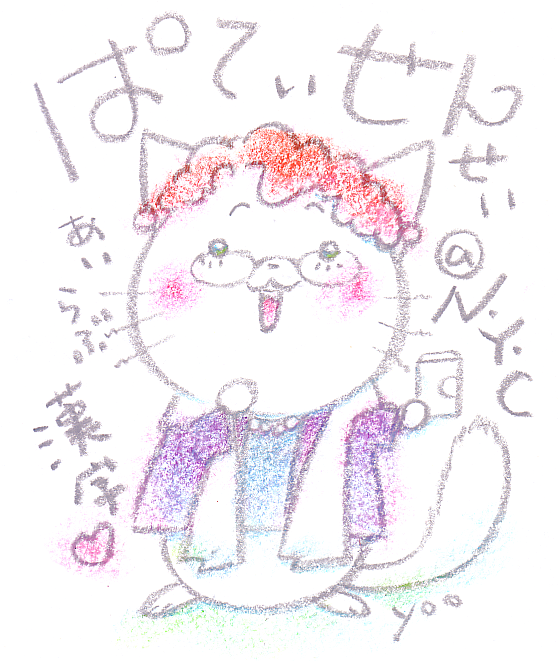 ぱてぃせん
せい
@
N.Y.C
あいらぶ
yoo